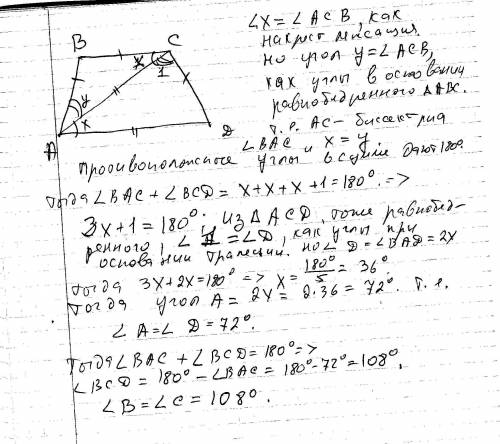 B
C
x
1
y
x
A
D
∠X = ∠ACB, как
накрест лежащия.
но угол y = ∠ACB,
как углы в основании
равнобедренного ΔABC.
т.е. AC - биссектриса
∠BAC и x = y.
Противоположные углы в сумме дают 180°.
тогда ∠BAC + ∠BCD = x + x + x + 1 = 180° =>
3x + 1 = 180°; из ΔACD, тоже равнобед-
ренного, ∠1 = ∠D, как углы при
основании трапеции. но ∠D = ∠BAD = 2x
тогда 3x + 2x = 180° => x = 180°/5 = 36°
тогда угол A = 2x = 2·36 = 72°. т.е.
∠A = ∠D = 72°.
Тогда ∠BAC + ∠BCD = 180° =>
∠BCD = 180° - ∠BAC = 180° - 72° = 108°.
∠B = ∠C = 108°.